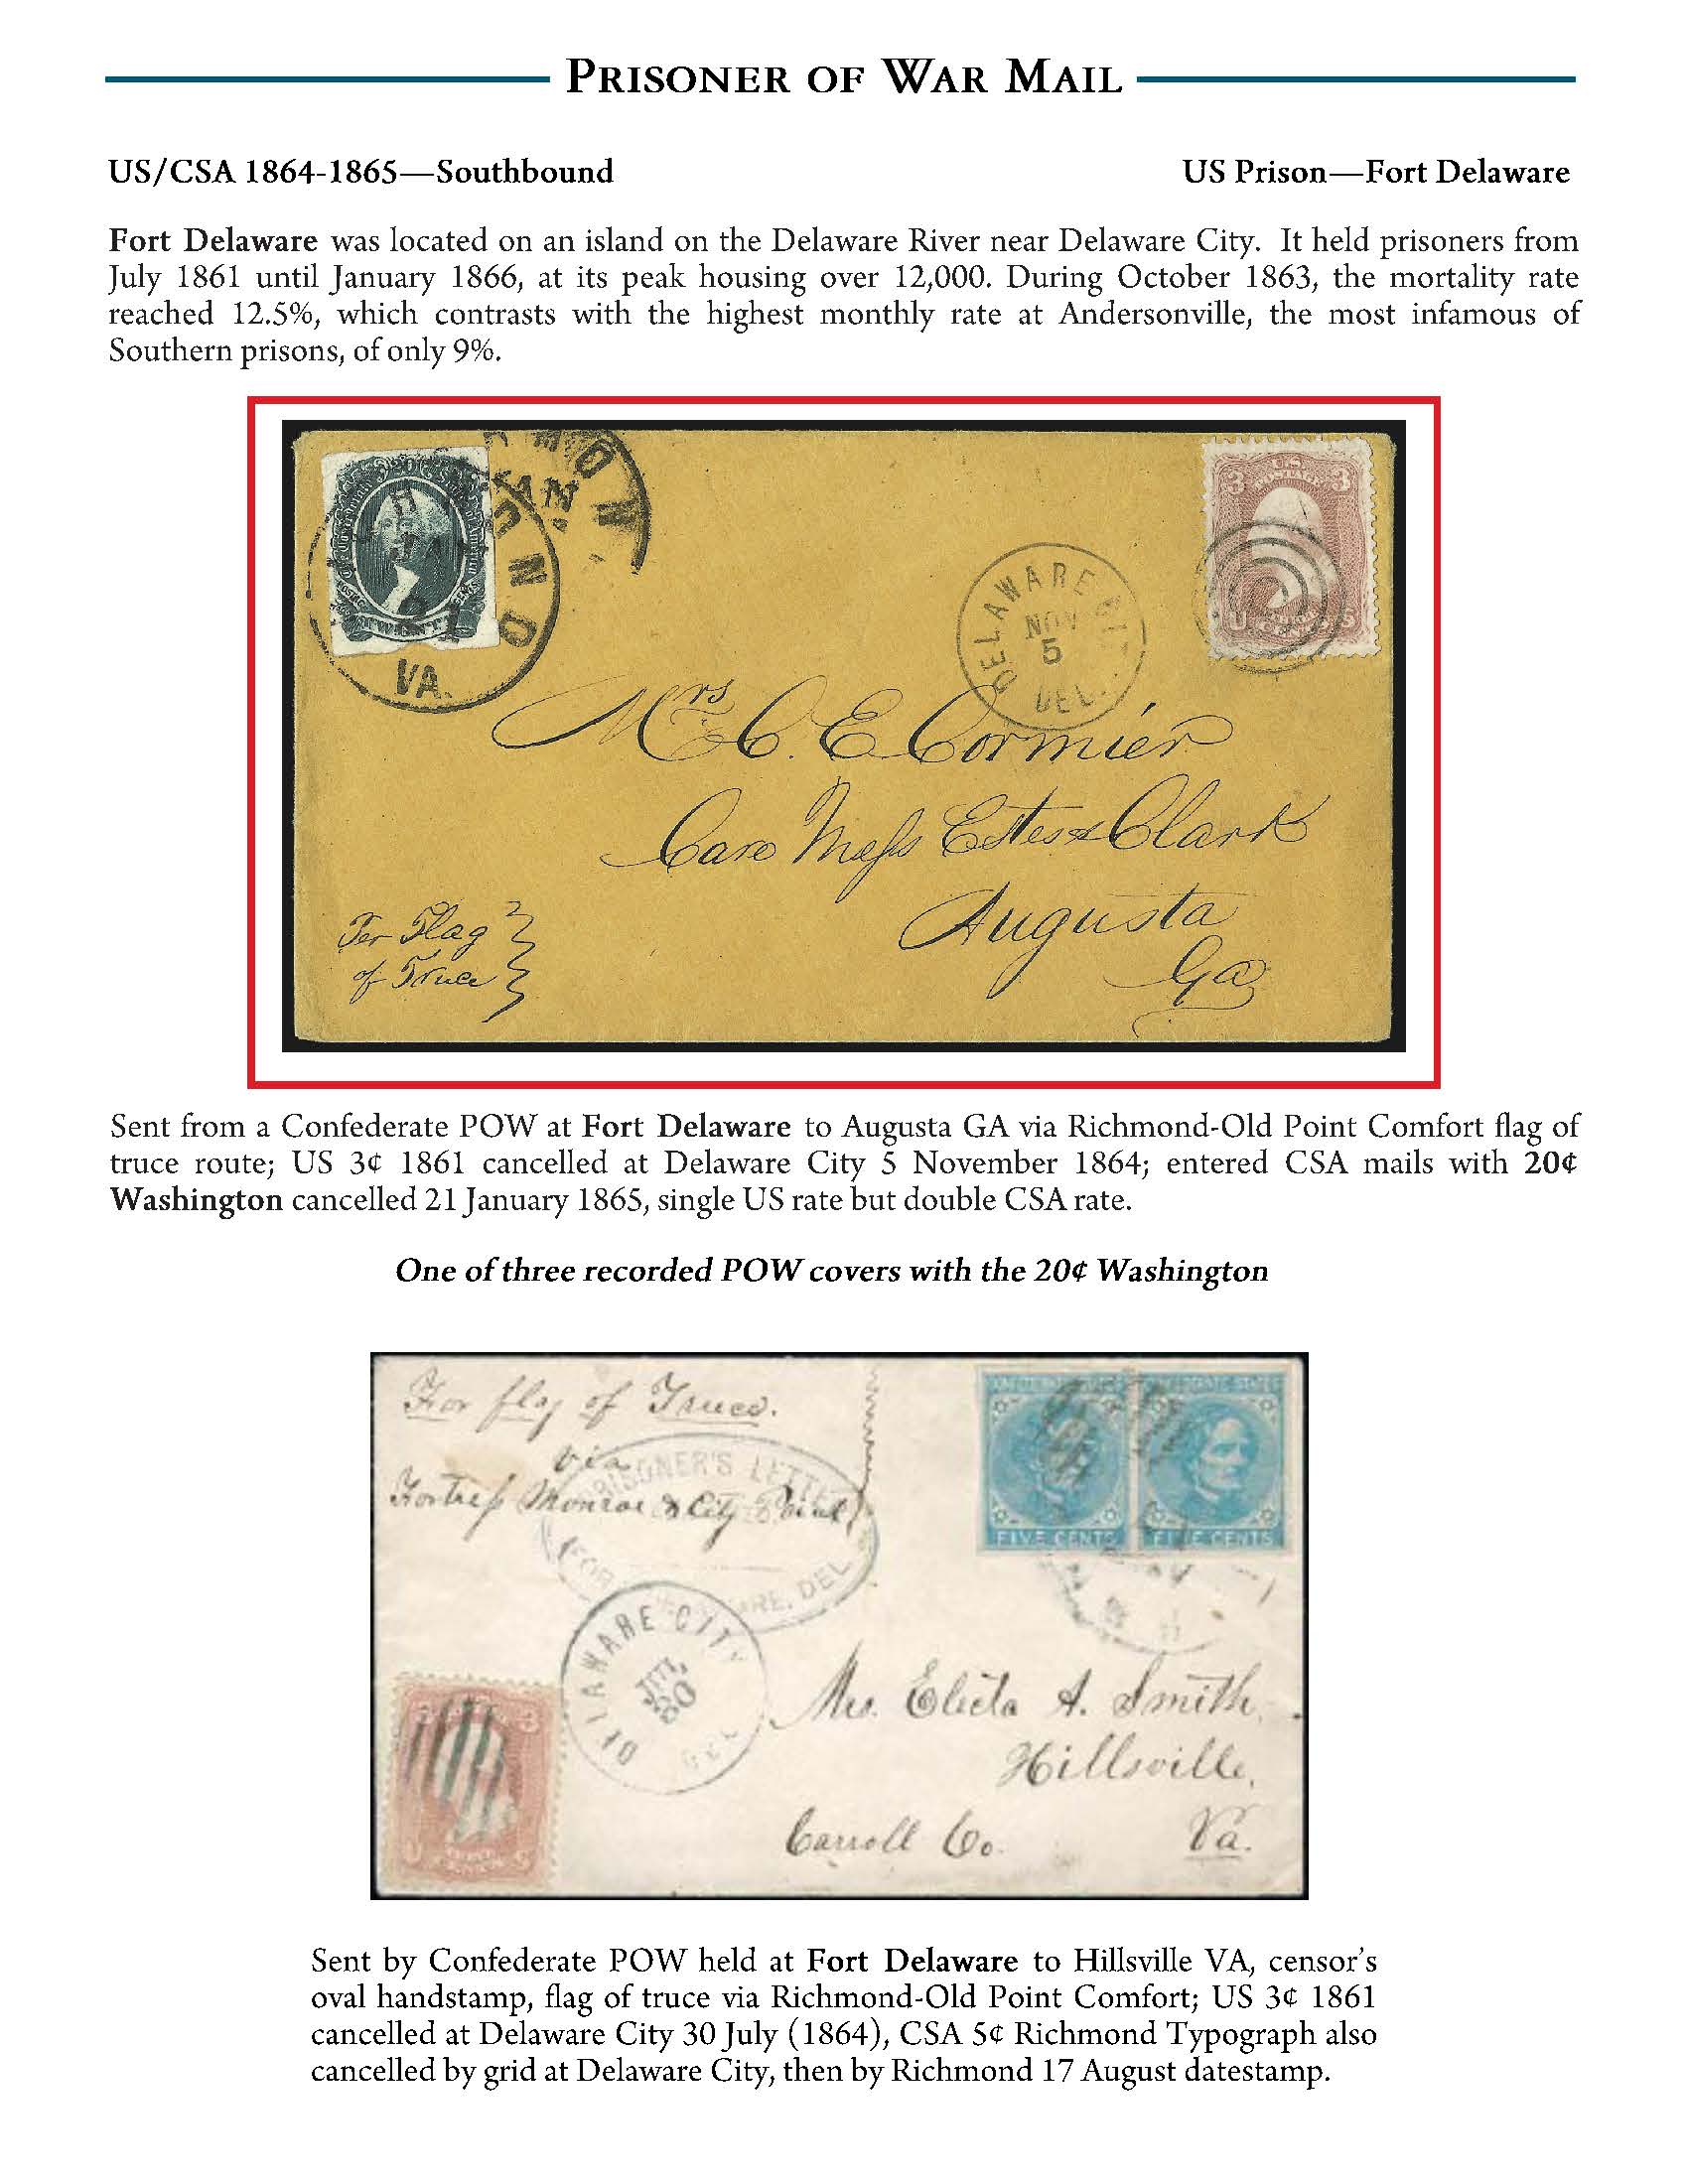 PRISONER OF WAR MAIL
US/CSA 1864-1865—Southbound
US Prison—Fort Delaware
Fort Delaware was located on an island on the Delaware River near Delaware City. It held prisoners from
July 1861 until January 1866, at its peak housing over 12,000. During October 1863, the mortality rate
reached 12.5%, which contrasts with the highest monthly rate at Andersonville, the most infamous of
Southern prisons, of only 9%.
VA.
21
DELAWARE CI
NOV
5
DEL.
U.S.
POSTAGE
3 3
U S
Mrs C. E Cormier
Care Mess Estes & Clark
Augusta
Ga
Per Flag
of Truce
Sent from a Confederate POW at Fort Delaware to Augusta GA via Richmond-Old Point Comfort flag of
truce route; US 3¢ 1861 cancelled at Delaware City 5 November 1864; entered CSA mails with 20¢
Washington cancelled 21 January 1865, single US rate but double CSA rate.
One of three recorded POW covers with the 20¢ Washington
For flag of Truce.
via
Fortress Monroe & City Point
PRISONER'S LETTE
DEL
FIVE CENTS FIVE CENTS
DELAWARE CITY
JUL
30
DEL
Mrs. Electa A. Smith,
Hillsville,
Carroll Co. Va.
Sent by Confederate POW held at Fort Delaware to Hillsville VA, censor's
oval handstamp, flag of truce via Richmond-Old Point Comfort; US 3¢ 1861
cancelled at Delaware City 30 July (1864), CSA 5¢ Richmond Typograph also
cancelled by grid at Delaware City, then by Richmond 17 August datestamp.